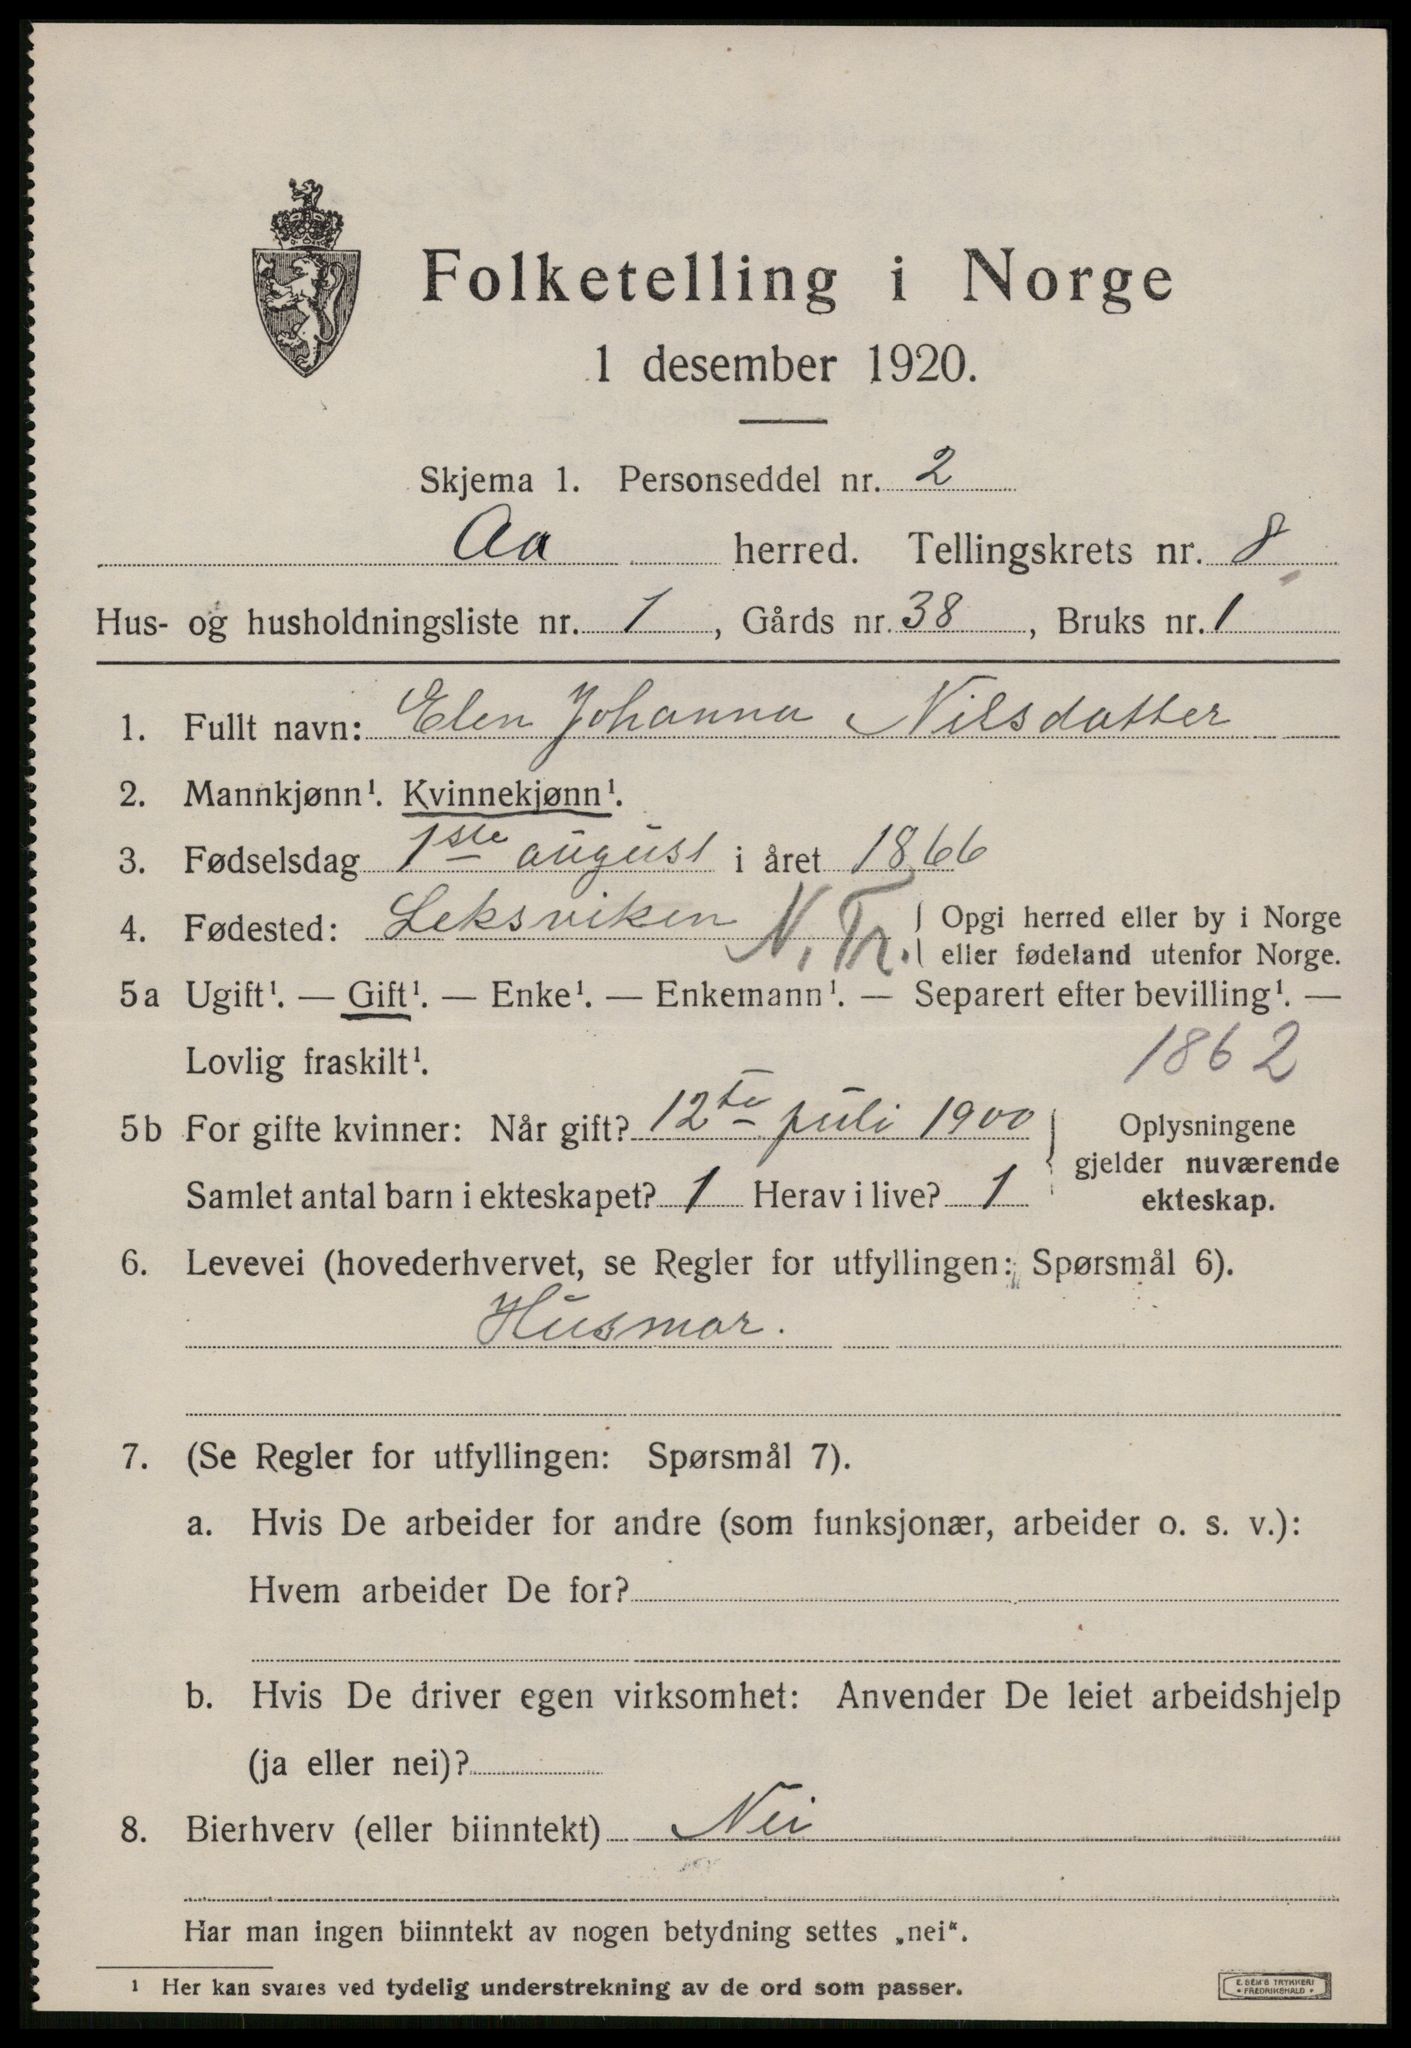 Folketelling i Norge
1 desember 1920.
Skjema 1. Personseddel nr. 2
Aa herred. Tellingskrets nr. 8
Hus- og husholdningsliste nr. 1, Gårds nr. 38, Bruks nr. 1
1. Fullt navn: Elen Johanna Nilsdatter
2. Mannkjønn¹. Kvinnekjønn¹.
3. Fødselsdag 1ste august i året 1866
4. Fødested: Leksviken N. Tr. Opgi herred eller by i Norge
eller fødeland utenfor Norge.
5a Ugift¹. — Gift¹. — Enke¹. — Enkemann¹. — Separert efter bevilling¹. —
Lovlig fraskilt¹. 1862
5b For gifte kvinner: Når gift? 12te juli 1900
Samlet antal barn i ekteskapet? 1 Herav i live? 1
Oplysningene
gjelder nuværende
ekteskap.
6. Levevei (hovederhvervet, se Regler for utfyllingen: Spørsmål 6).
Husmor.
7. (Se Regler for utfyllingen: Spørsmål 7).
a. Hvis De arbeider for andre (som funksjonær, arbeider o. s. v.):
Hvem arbeider De for?
b. Hvis De driver egen virksomhet: Anvender De leiet arbeidshjelp
(ja eller nei)?
8. Bierhverv (eller biinntekt) Nei
Har man ingen biinntekt av nogen betydning settes „nei“.
¹ Her kan svares ved tydelig understrekning av de ord som passer.
E. SEM'S TRYKKERI
• FREDRIKSHALD •